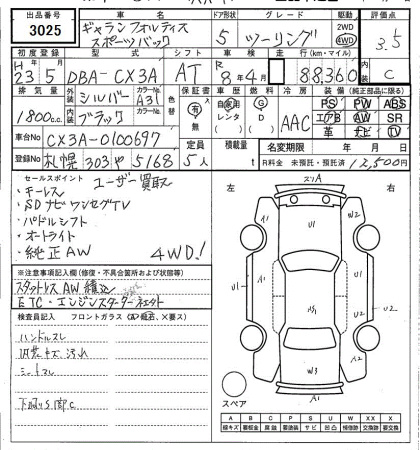 出品番号
3025
車名
ギャランフォルティス
スポーツバック
ドア形状
5
グレード
ツーリング
駆動
2WD
4WD
評価点
3.5
初度登録
H23 5
型式
DBA-CX3A
シフト
AT
車検
R8 4
走行(km・マイル)
88,360
内装
C
排気量
1800cc
外装
シルバー
カラーNo.
A31
内装
ブラック
カラーNo.
色替
保証書
有
無
車歴
自家
レンタ
燃料
G
D
冷房
AAC
装備(純正部品に限る)
PS PW ABS
エアB AW SR
革 ナビ TV
車台No
CX3A-0100697
登録No
札幌 303 や 5168
定員
5人
積載量
t
名変期限 年 月 日
R料金 未預託・預託済 12,500円
セールスポイント ユーザー買取
・キーレス
・SDナビワンセグTV
・パドルシフト
・オートライト
・純正AW 4WD!
※注意事項記入欄(修復・不具合箇所および状態等)
スタットレスAW積込
ETC・エンジンスターター
検査員記入 フロントガラス(A・飛石、×要ス)
ハンドルスレ
内装キズ汚れ
シートスレ
左
スリA
右
A1
U1
W2
A1
U2
A1
U2
U2
W3
A2
A2
スペア
A B C P S U W X XX
線キズ 要板金 腐蝕 要塗装 サビ 凹凸 補修跡 交換跡 要交換